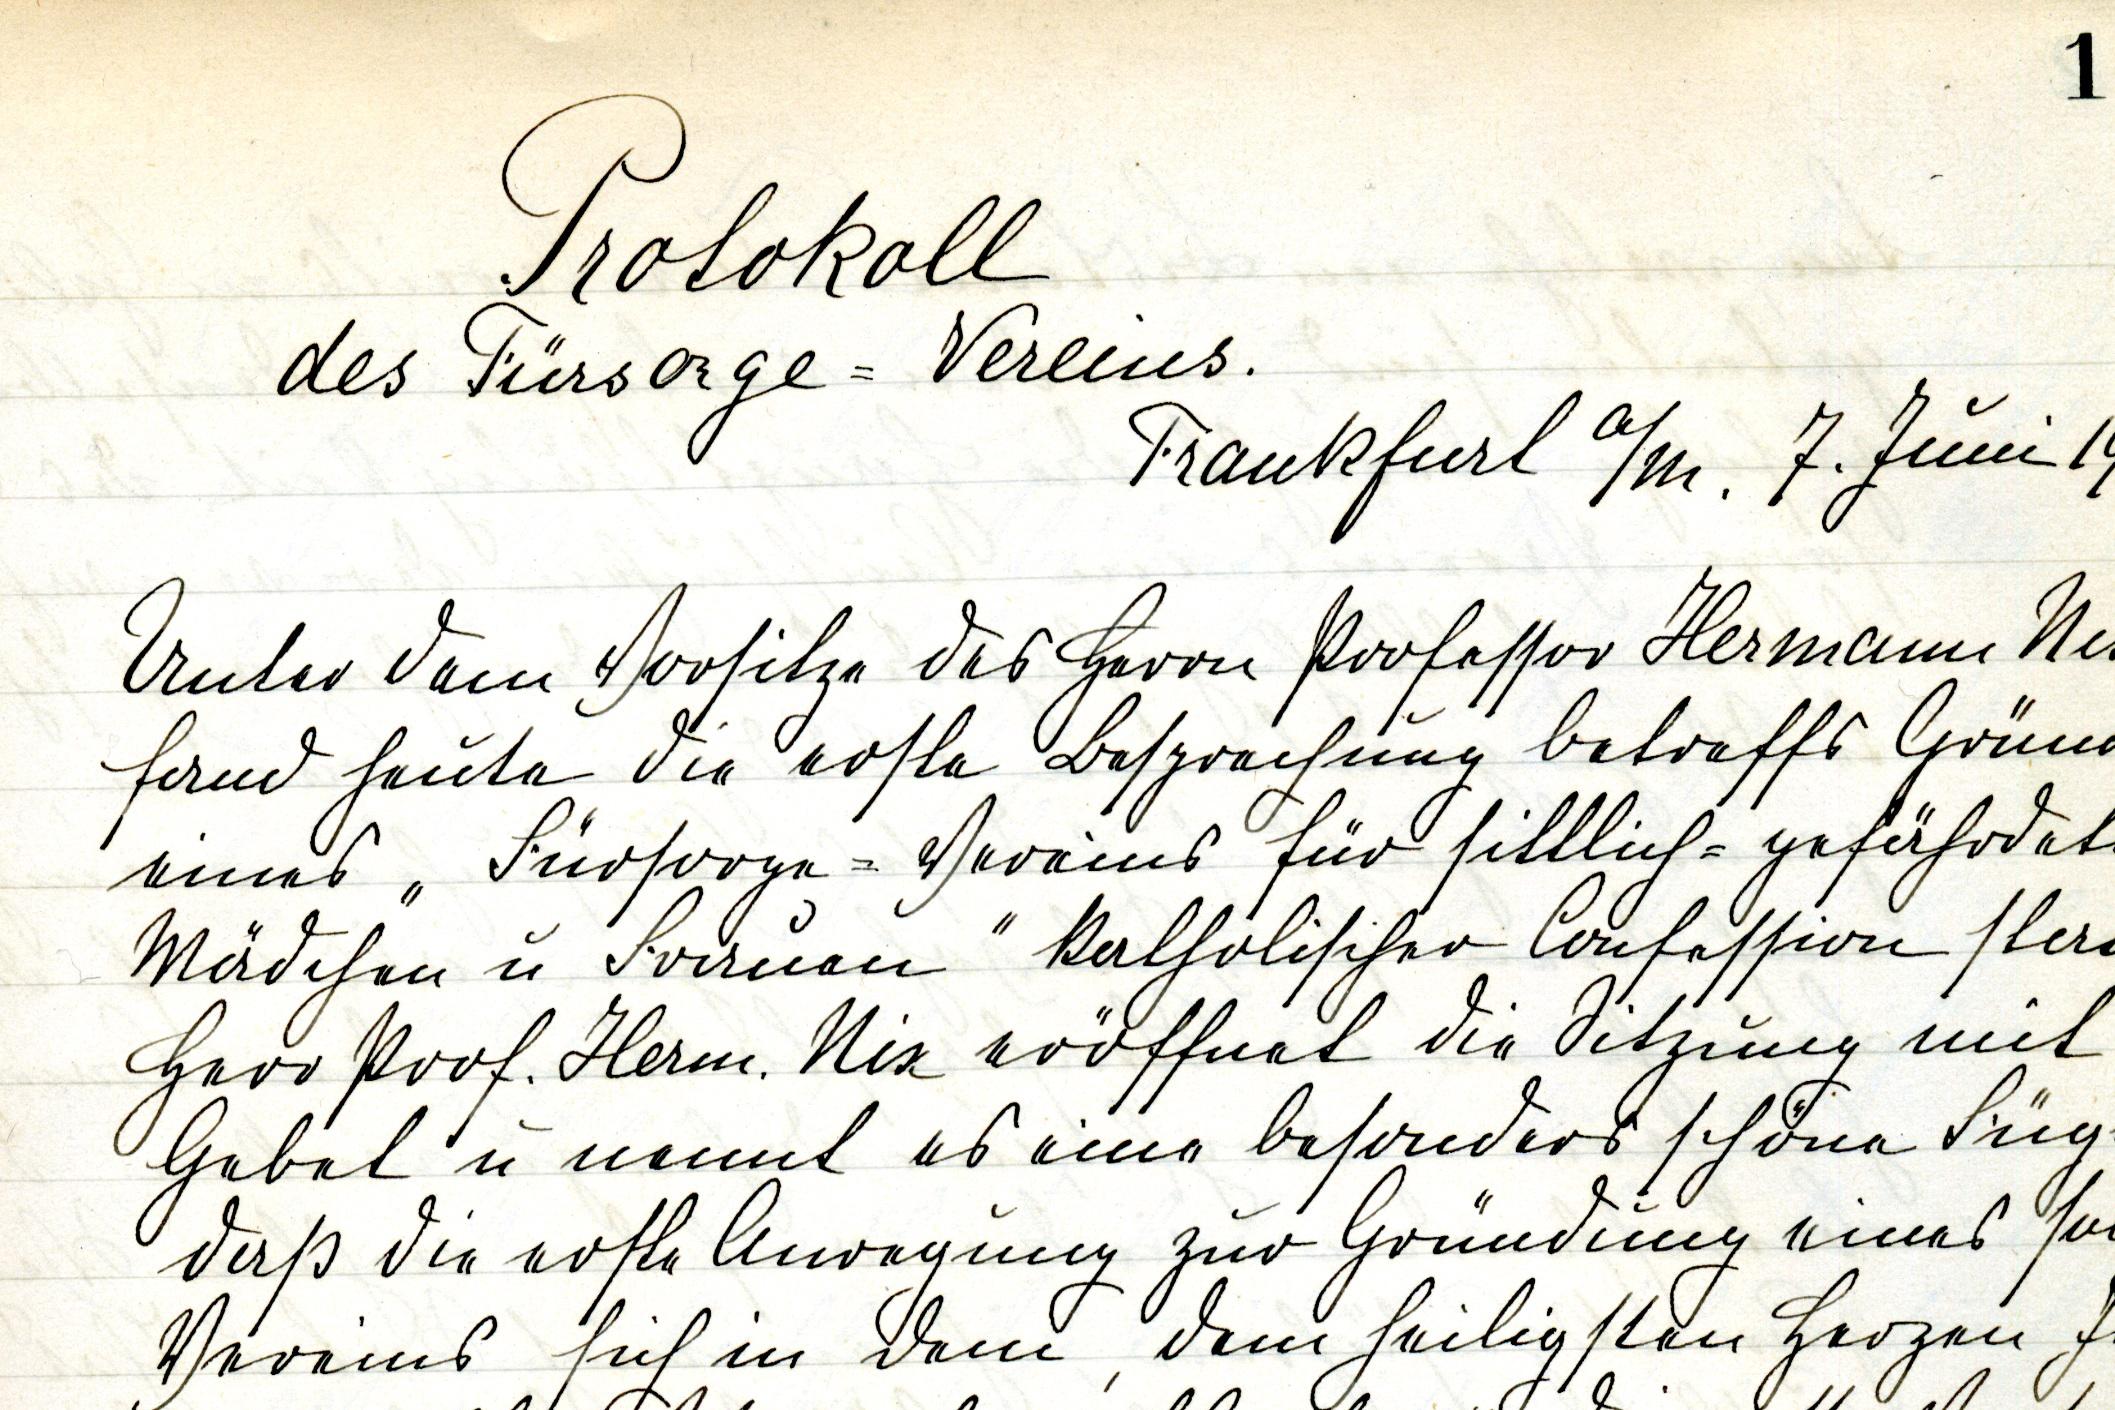 1
Protokoll
des Fürsorge= Vereins.
Frankfurt a/M. 7. Juni 19
Unter dem Vorsitze des Herrn Professor Hermann
fand heute die erste Besprechung betreffs Gründ
eines „Fürsorge=Vereins für sittlich=gefährdete
Mädchen u Frauen" katholischer Confession
Herr Prof. Herm. Nix eröffnet die Sitzung mit
Gebet u nennt es eine besonders schöne Füg
daß die erste Anregung zur Gründung eines
Vereins sich in dem, dem heiligsten Herzen